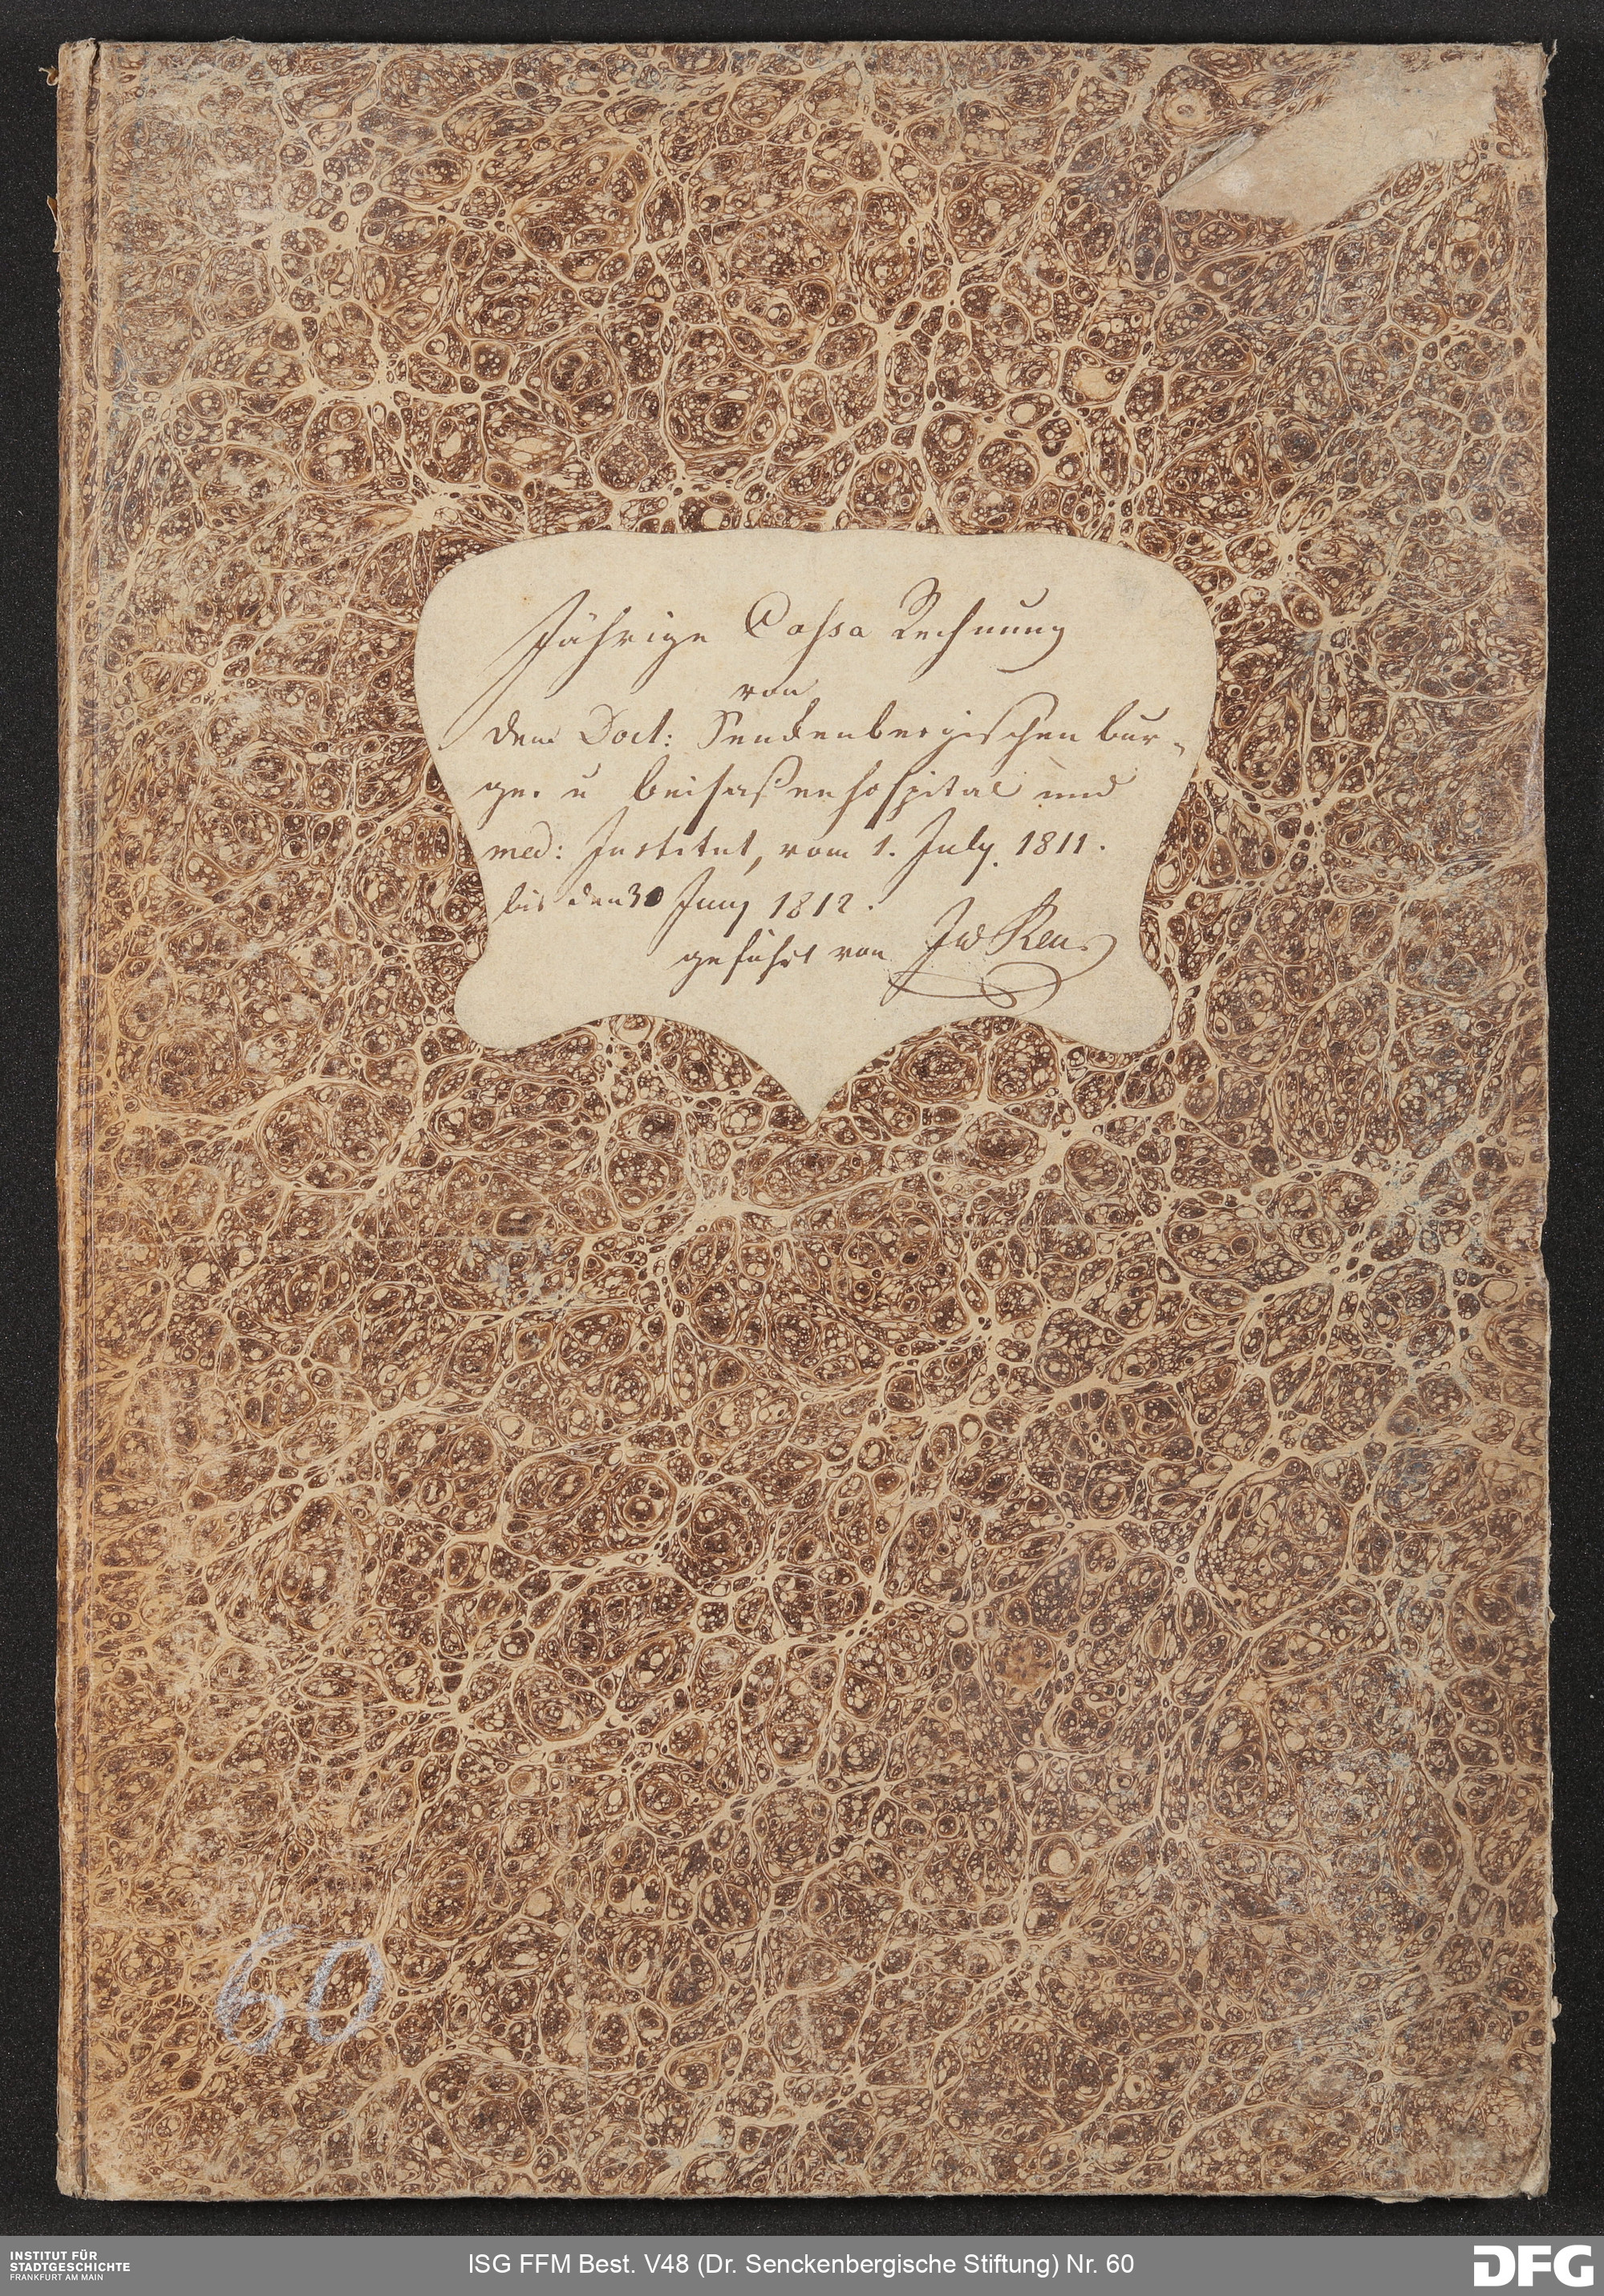 Jährige Cassa Rechnung
von
dem Doct: Senckenbergischen bur-
ger u beisaßenhospital und
med: Institut, vom 1. July. 1811.
bis den 30 Juny 1812.
geführt von
60
INSTITUT FÜR
STADTGESCHICHTE
FRANKFURT AM MAIN
ISG FFM Best. V48 (Dr. Senckenbergische Stiftung) Nr. 60
DFG